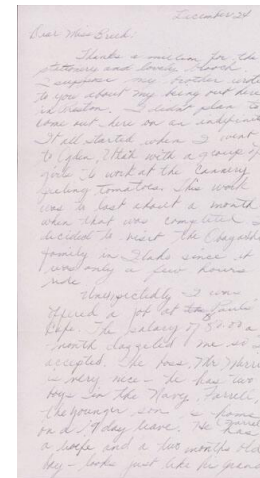 December 24
Dear Miss Breed,
Thanks a million for the
stationery and lovely
I suppose my brother wrote
to you about my being out here
in Preston. I didn't plan to
come out here on an
It all started when I went
to Ogden, Utah with a group of
girls to work at the Cannery
peeling tomatoes. This work
was to last about a month
when that was completed I
decided to visit the
family in Idaho since it
was only a few hours
ride
Unexpectedly I was
offered a job at
Cafe. The salary of 80.00 a
month me so I
accepted. The boss, Mr
is very nice - he has two
boys in the Navy. Farrell,
the younger son, is home
on a 9 day leave. He has
a wife and a two months old
boy - looks just like his grand